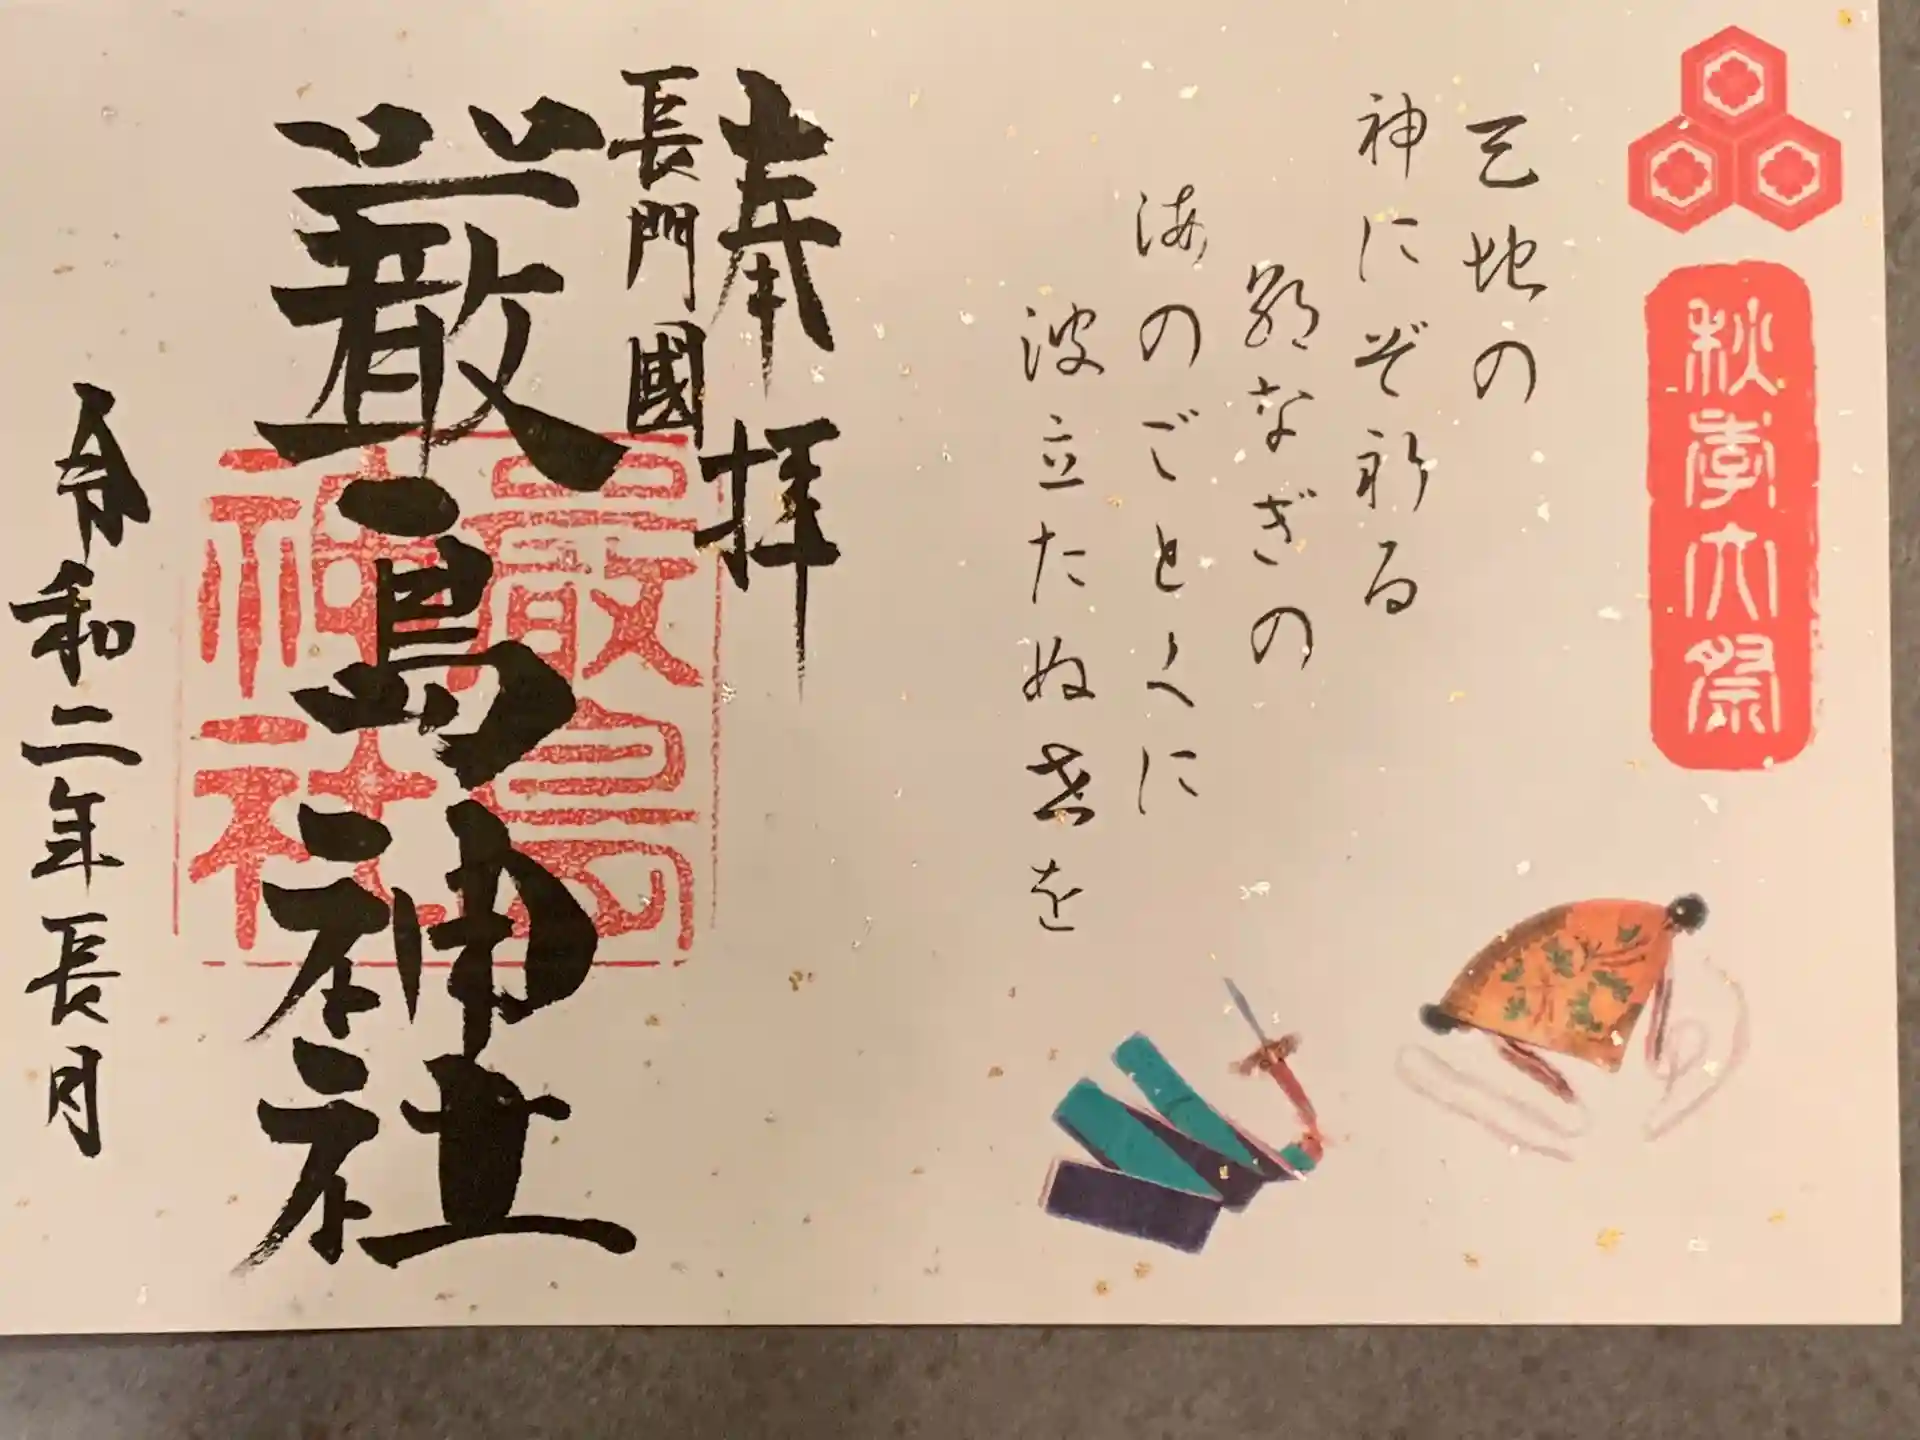 秋季大祭
天地の
神にぞ祈る
朝なぎの
海のごとくに
波立たぬ世を
奉拝
長門國
厳島神社
厳島神社
令和二年長月